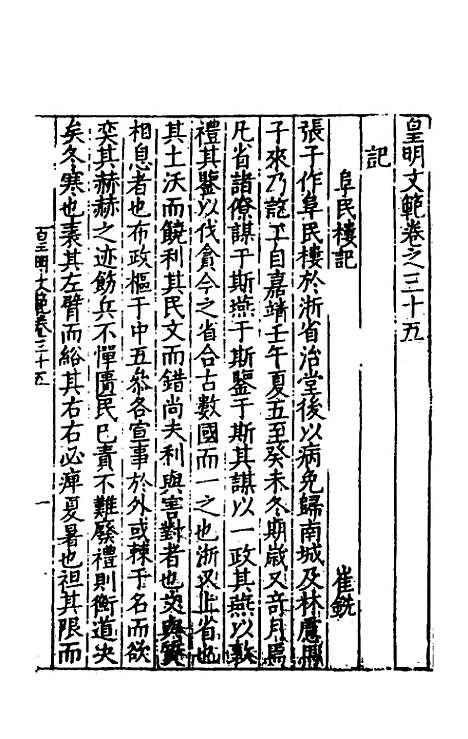 皇明文範卷之三十五
記
阜民樓記 崔銑
張子作阜民樓於浙省治堂後以病免歸南城及林
子來乃訖工自嘉靖壬午夏五至癸未冬期歲又奇月焉
凡省諸僚謀于斯燕于斯鑒于斯其謀以一政其燕以敦
禮其鑒以伐貪今之省合古數國而一之也浙又上省也
其土沃而饒利其民文而錯尚夫利與害對者也文與質
相息者也布政樞于中五叅各宣事於外或棘于名而欲
奕其赫赫之迹飭兵不憚匱民巳責不難廢禮則衡道决
矣冬寒也裘其左臂而綌其右右必痺夏暑也袒其限而
皇明文範卷三十五 一